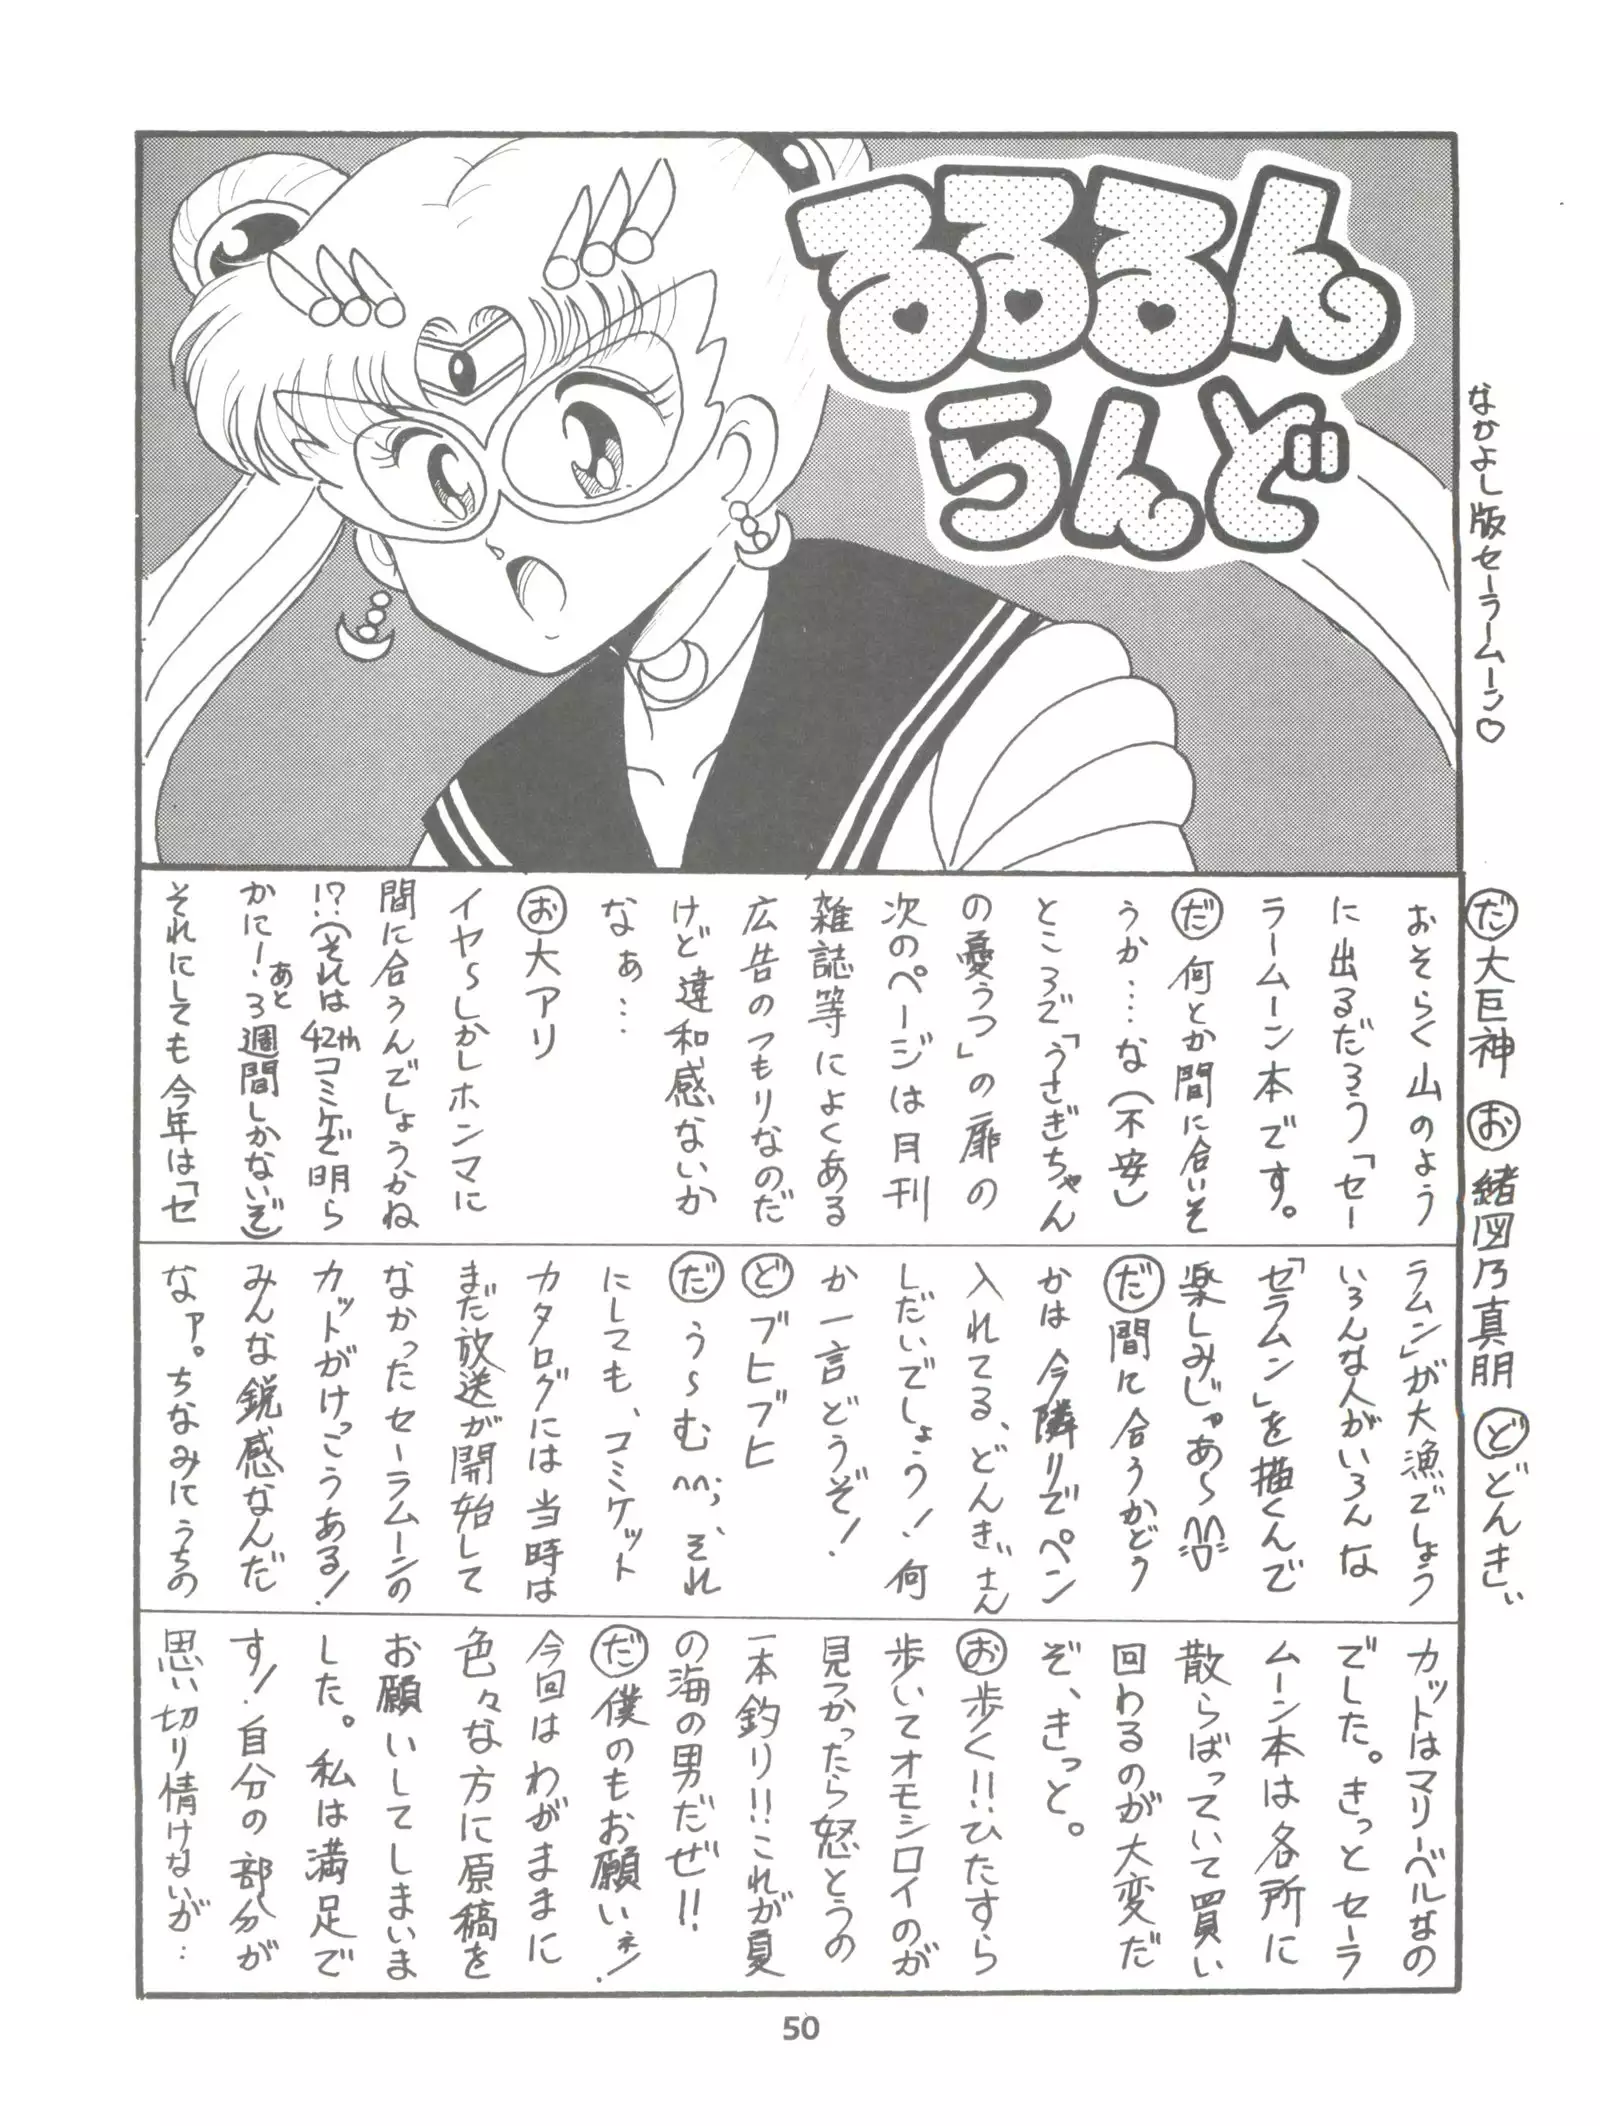 るるるん
らんど
なかよし版セーラームーン♡
だ大巨神 お緒図乃真朋 どどんきぃ
おそらく山のよう
に出るだろう「セー
ラームーン本です。
だ何とか間に合いそ
うか‥‥な(不安)
ところで「うさぎちゃん
の憂うつ」の扉の
次のページは月刊
雑誌等によくある
広告のつもりなのだ
けど違和感ないか
なぁ…
お大アリ
イヤ～しかしホンマに
間に合うんでしょうかね
!?(それは42thコミケで明ら
かにー!あと3週間しかないぞ)
それにしても今年は「セ
ラムン」が大漁でしょう
いろんな人がいろんな
「セラムン」を描くんで
楽しみじゃあ～
だ間に合うかどう
かは今隣りでペン
入れてる、どんきぃさん
しだいでしょう!何
か一言どうぞ!
どブヒブヒ
だう～む^^;それ
にしても、コミケット
カタログには当時は
まだ放送が開始して
なかったセーラムーンの
カットがけっこうある!
みんな鋭感なんだ
なァ。ちなみにうちの
カットはマリーベルなの
でした。きっとセーラ
ムーン本は各所に
散らばっていて買い
回わるのが大変だ
ぞ、きっと。
お歩く!!ひたすら
歩いてオモシロイのが
見つかったら怒とうの
一本釣り!!これが夏
の海の男だぜ!!
だ僕のもお願いネ!
今回はわがままに
色々な方に原稿を
お願いしてしまいま
した。私は満足で
す!自分の部分が
思い切り情けないが‥
50